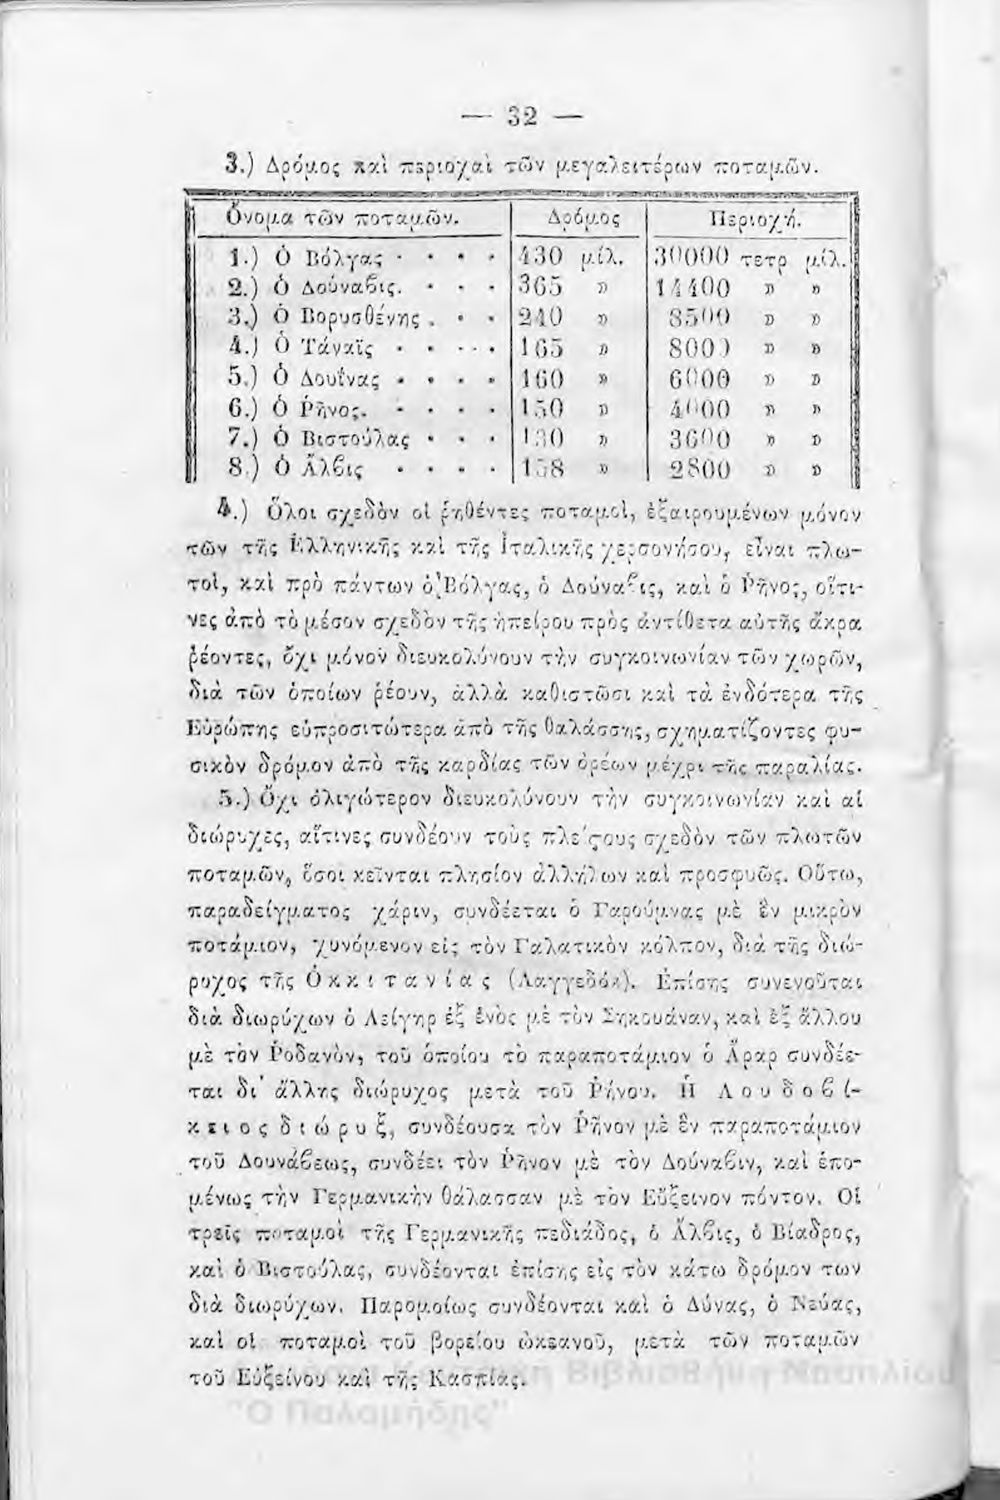 — 32 —
3.) Δρόμος καὶ περιοχαὶ τῶν μεγαλειτέρων ποταμῶν.
Ὄνομα τῶν ποταμῶν. Δρόμος Περιοχή.
1.) Ὁ Βόλγας · · · · 430 μίλ. 30000 τετρ μίλ.
2.) Ὁ Δούναβις. · · · 365 » 14400 » »
3.) Ὁ Βορυσθένης . · · 240 » 8500 » »
4.) Ὁ Τάναϊς · · · · 165 » 8000 » »
5.) Ὁ Δουΐνας · · · · 160 » 6000 » »
6.) Ὁ Ῥῆνος. · · · · 150 » 4000 » »
7.) Ὁ Βιστούλας · · · 130 » 3600 » »
8.) Ὁ Ἄλβις · · · · 158 » 2800 » »
4.) Ὅλοι σχεδὸν οἱ ῥηθέντες ποταμοὶ, ἐξαιρουμένων μόνον
τῶν τῆς Ἑλληνικῆς καὶ τῆς Ἰταλικῆς χερσονήσου, εἶναι πλω-
τοὶ, καὶ πρὸ πάντων ὁ Βόλγας, ὁ Δούναβις, καὶ ὁ Ῥῆνος, οἵτι-
νες ἀπὸ τὸ μέσον σχεδὸν τῆς ἠπείρου πρὸς ἀντίθετα αὐτῆς ἄκρα
ῥέοντες, ὄχι μόνον διευκολύνουν τὴν συγκοινωνίαν τῶν χωρῶν,
διὰ τῶν ὁποίων ῥέουν, ἀλλὰ καθιστῶσι καὶ τὰ ἐνδότερα τῆς
Εὐρώπης εὐπροσιτώτερα ἀπὸ τῆς θαλάσσης, σχηματίζοντες φυ-
σικὸν δρόμον ἀπὸ τῆς καρδίας τῶν ὀρέων μέχρι τῆς παραλίας.
5.) Ὄχι ὀλιγώτερον διευκολύνουν τὴν συγκοινωνίαν καὶ αἱ
διώρυχες, αἵτινες συνδέουν τοὺς πλείςους σχεδὸν τῶν πλωτῶν
ποταμῶν, ὅσοι κεῖνται πλησίον ἀλλήλων καὶ προσφυῶς. Οὕτω,
παραδείγματος χάριν, συνδέεται ὁ Γαρούμνας μὲ ἓν μικρὸν
ποτάμιον, χυνόμενον εἰς τὸν Γαλατικὸν κόλπον, διὰ τῆς διώ-
ρυχος τῆς Ὀκκιτανίας (Λαγγεδόκ). Ἐπίσης συνενοῦται
διὰ διωρύχων ὁ Λείγηρ ἐξ ἑνὸς μὲ τὸν Σηκουάναν, καὶ ἐξ ἄλλου
μὲ τὸν Ῥοδανὸν, τοῦ ὁποίου τὸ παραποτάμιον ὁ Ἄραρ συνδέε-
ται δι' ἄλλης διώρυχος μετὰ τοῦ Ῥήνου. Ἡ Λουδοβί-
κειος διώρυξ, συνδέουσα τὸν Ῥῆνον μὲ ἓν παραποτάμιον
τοῦ Δουνάβεως, συνδέει τὸν Ῥῆνον μὲ τὸν Δούναβιν, καὶ ἑπο-
μένως τὴν Γερμανικὴν θάλασσαν μὲ τὸν Εὔξεινον πόντον. Οἱ
τρεῖς ποταμοὶ τῆς Γερμανικῆς πεδιάδος, ὁ Ἄλβις, ὁ Βίαδρος,
καὶ ὁ Βιστούλας, συνδέονται ἐπίσης εἰς τὸν κάτω δρόμον των
διὰ διωρύχων. Παρομοίως συνδέονται καὶ ὁ Δύνας, ὁ Νεύας,
καὶ οἱ ποταμοὶ τοῦ βορείου ὠκεανοῦ, μετὰ τῶν ποταμῶν
τοῦ Εὐξείνου καὶ τῆς Κασπίας.
Βιβλιοθήκη Ναυπλίου
"Ο Παλαμήδης"